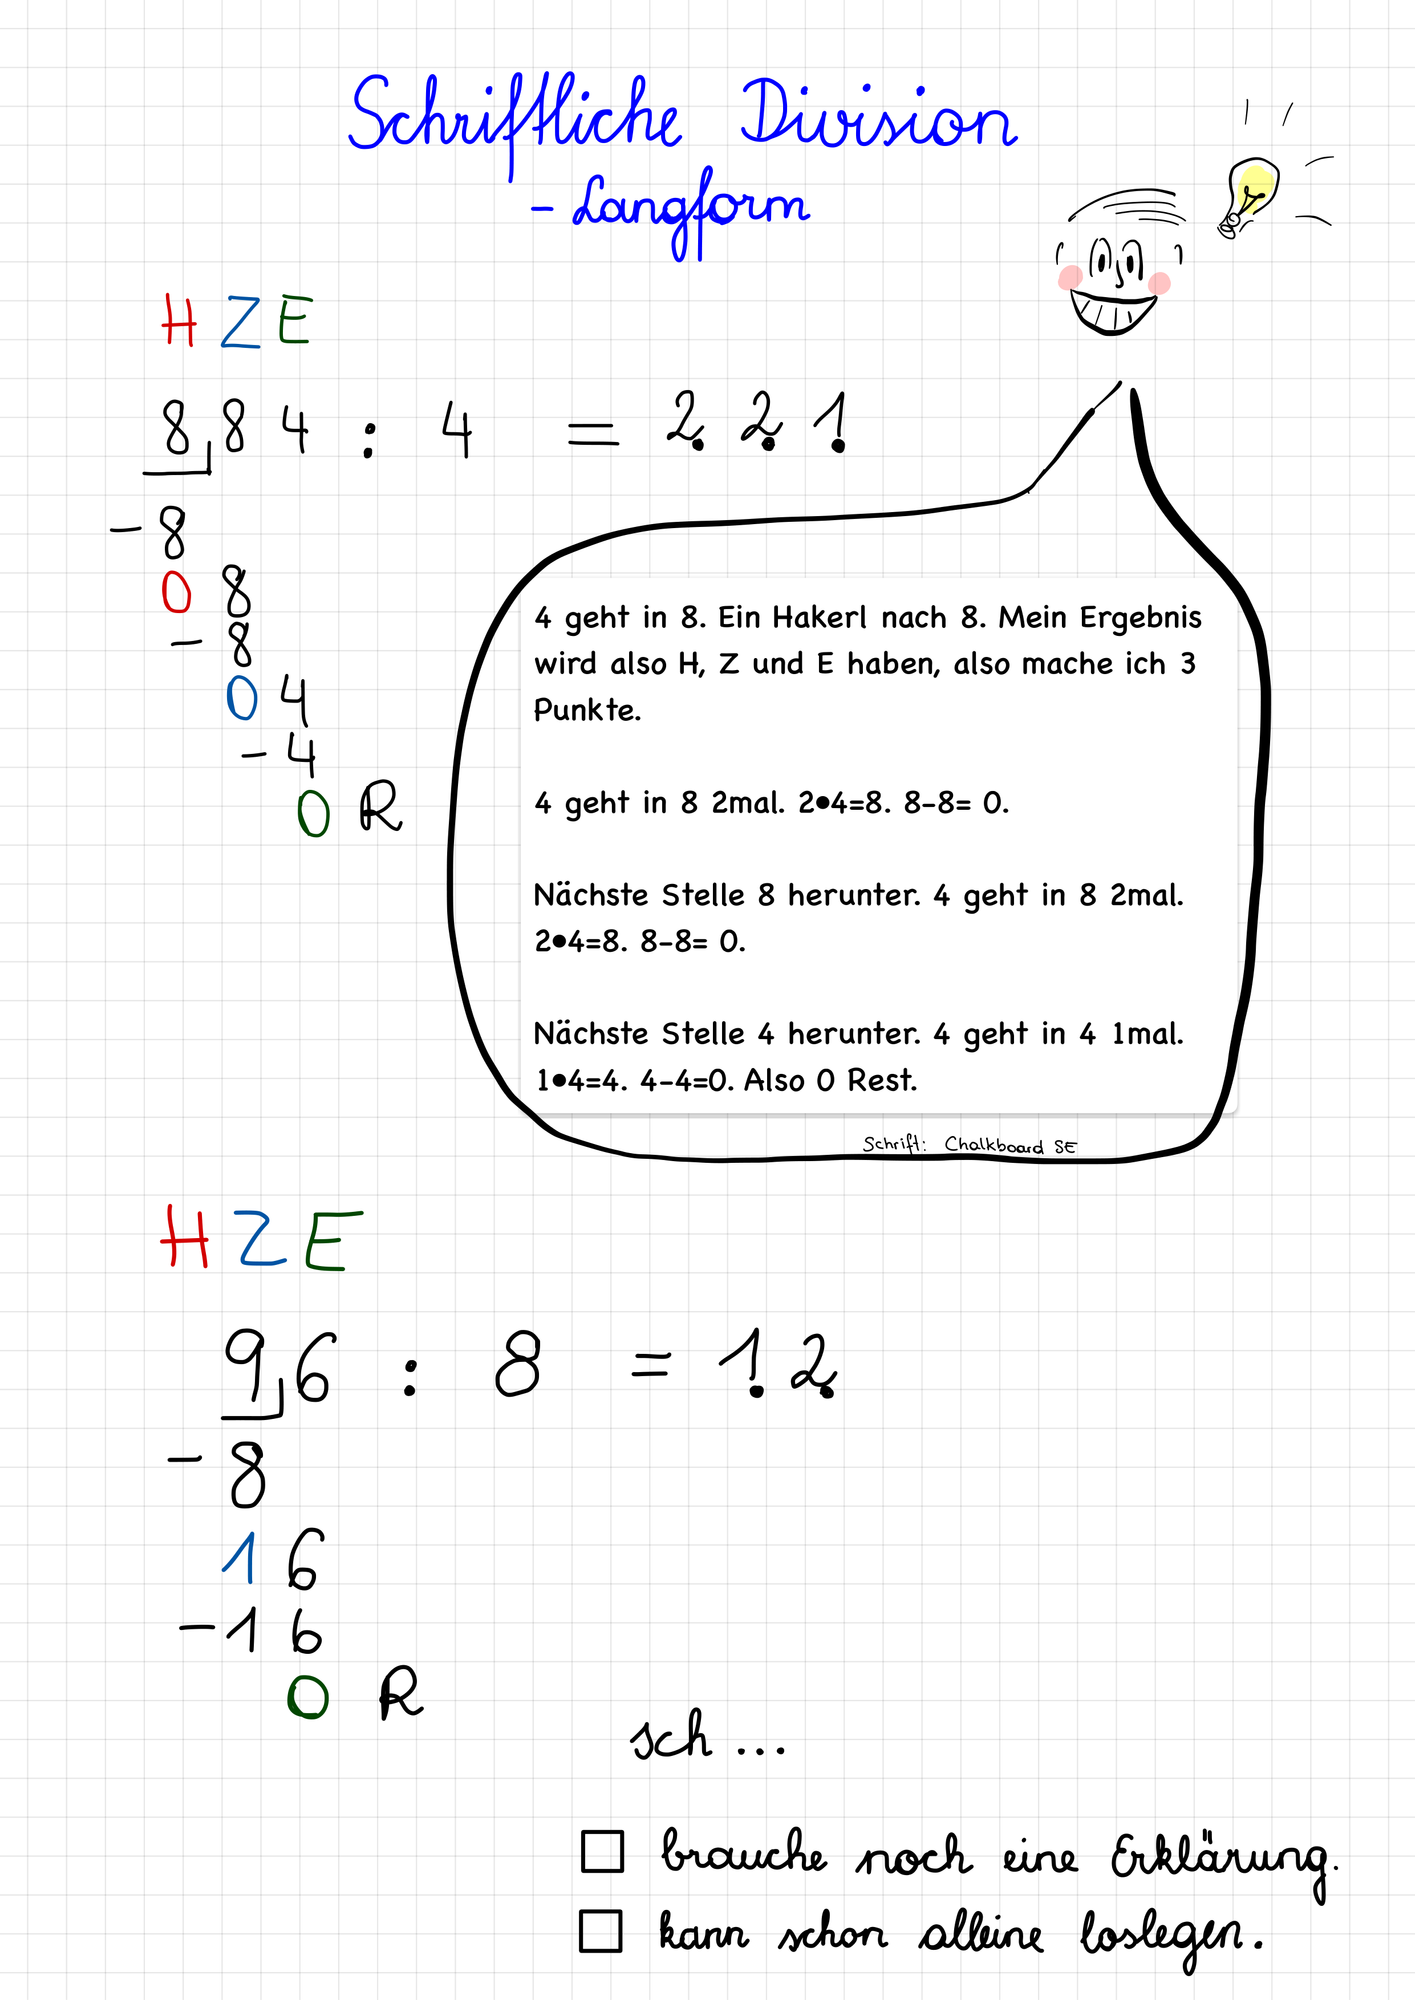 Schriftliche Division
- Langform
H Z E
8,84 : 4 = 2 2 1
-8
0 8
- 8
0 4
- 4
0 R
4 geht in 8. Ein Hakerl nach 8. Mein Ergebnis
wird also H, Z und E haben, also mache ich 3
Punkte.
4 geht in 8 2mal. 2•4=8. 8-8= 0.
Nächste Stelle 8 herunter. 4 geht in 8 2mal.
2•4=8. 8-8= 0.
Nächste Stelle 4 herunter. 4 geht in 4 1mal.
1•4=4. 4-4=0. Also 0 Rest.
Schrift: Chalkboard SE
H Z E
9,6 : 8 = 1 2
-8
1 6
-1 6
0 R
Ich ...
☐ brauche noch eine Erklärung.
☐ kann schon alleine loslegen.